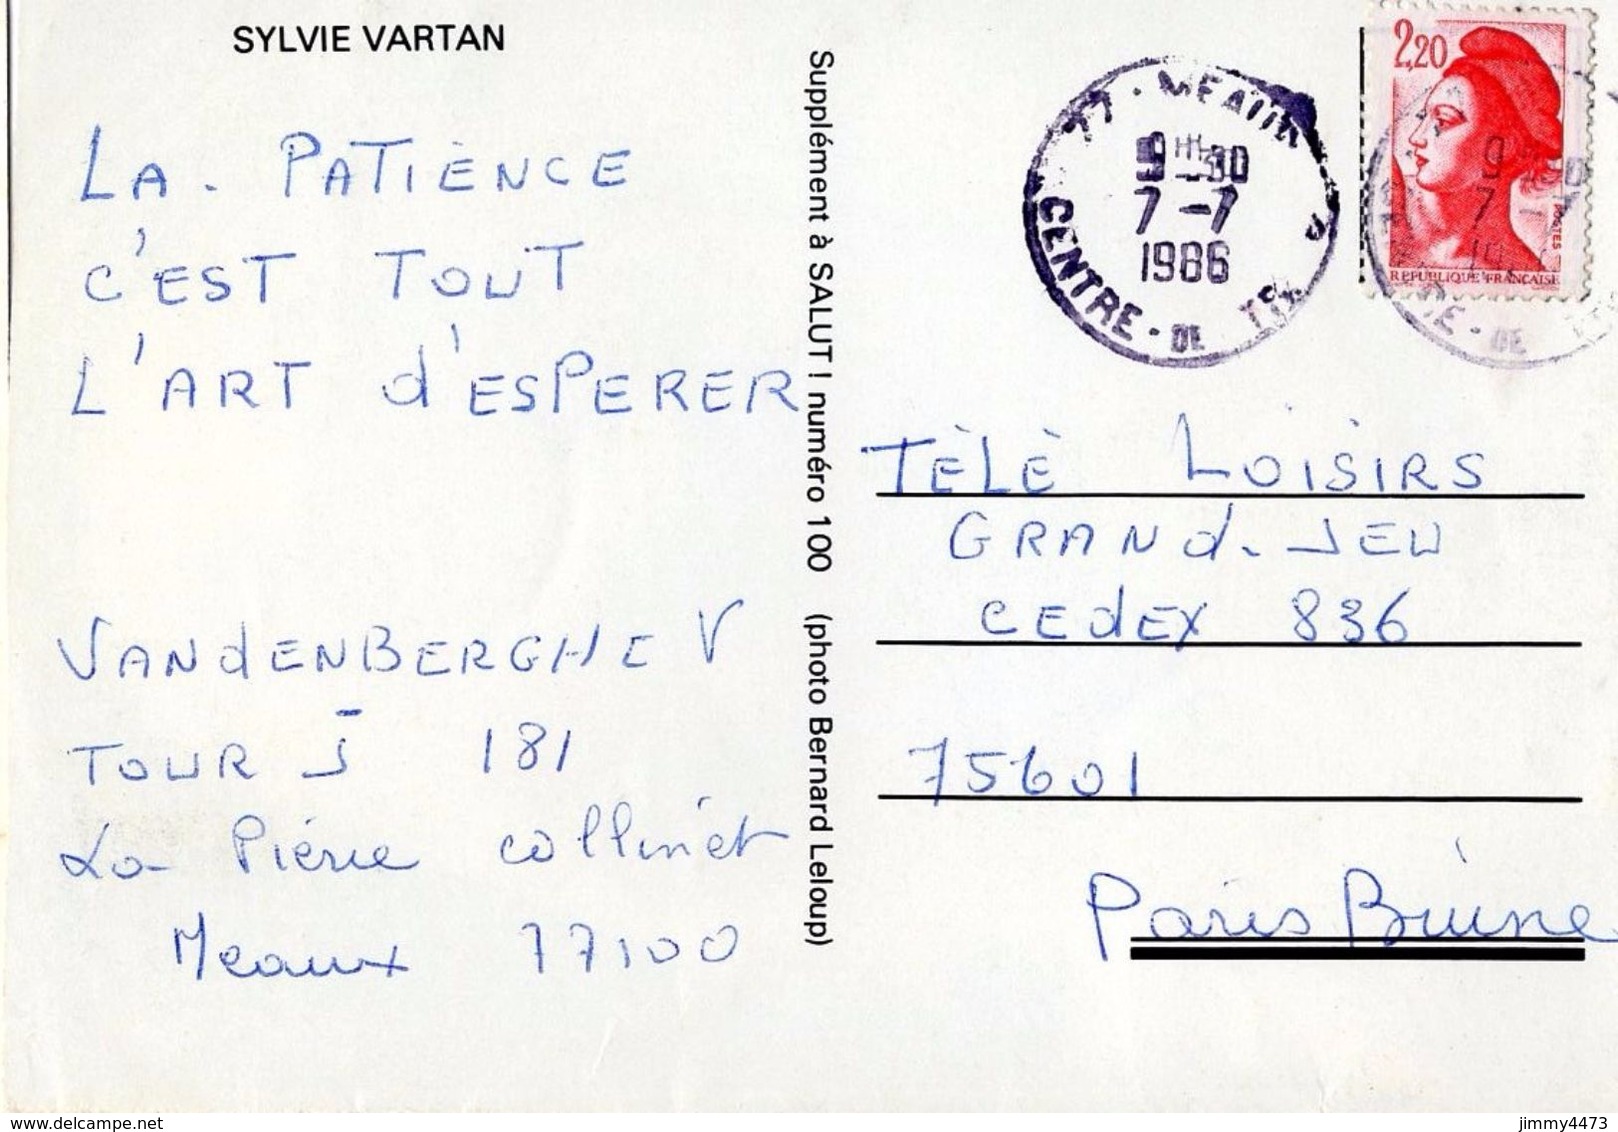 SYLVIE VARTAN
LA. PATIENCE
C'EST TOUT
L'ART d'ESPERER
VANdENBERGHE V
TOUR J 181
La Pierre Collinet
Meaux 77100
Supplément à SALUT ! numéro 100 (photo Bernard Leloup)
77 - MEAUX
9H30
7-7
1986
CENTRE - DE TRI
2,20
POSTES
REPUBLIQUE FRANÇAISE
TÈLÈ LOISIRS
GRANd-JEU
CEdEX 836
75601
Paris Brune
delcampe.net
jimmy4473